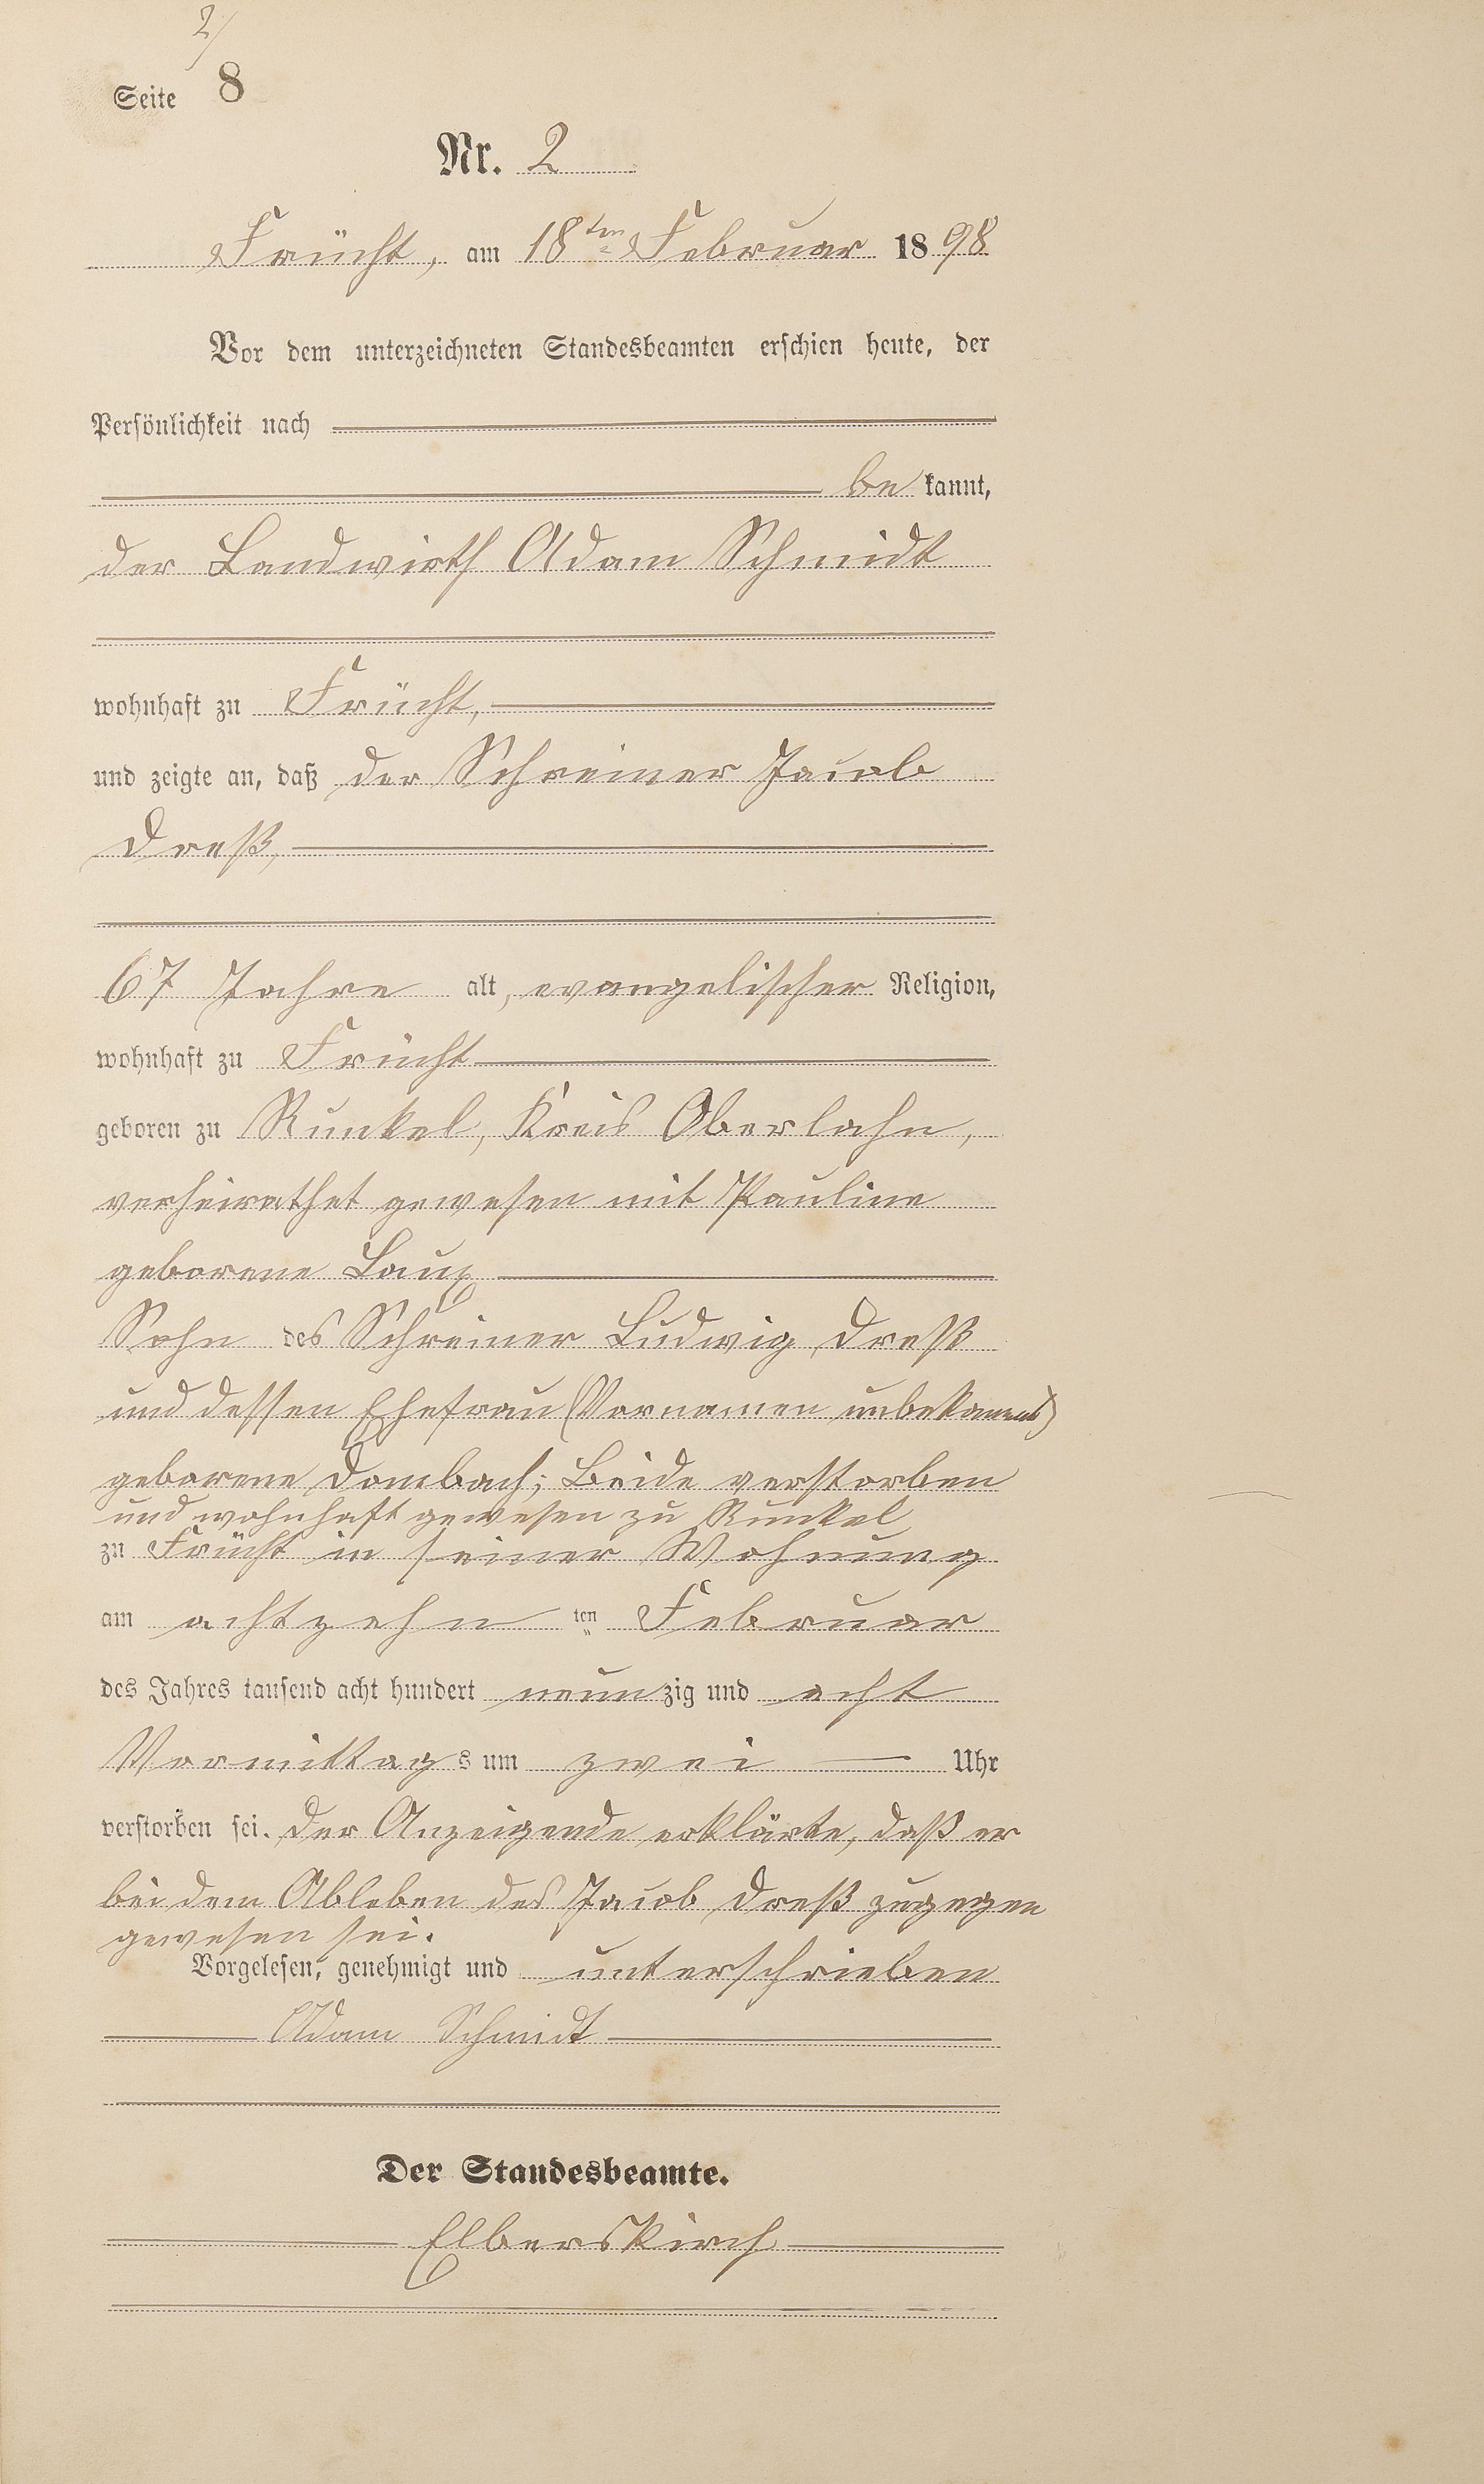 2/
Seite 8
Nr. 2
Frücht, am 18ten Februar 1898
Vor dem unterzeichneten Standesbeamten erschien heute, der
Persönlichkeit nach
be kannt,
der Landwirth Adam Schmidt
wohnhaft zu Frücht,
und zeigte an, daß der Schreiner Jacob
Dreß,
67 Jahre alt, evangelischer Religion,
wohnhaft zu Frücht
geboren zu Runkel, Kreis Oberlahn,
verheirathet gewesen mit Pauline
geborene Laux
Sohn des Schreiner Ludwig Dreß
und dessen Ehefrau (Vornamen unbekannt)
geborene Dombach; Beide verstorben
und wohnhaft gewesen zu Runkel
zu Frücht in seiner Wohnung
am achtzehn ten Februar
des Jahres tausend acht hundert neunzig und acht
Vormittags um zwei Uhr
verstorben sei. Der Anzeigende erklärte, daß er
bei dem Ableben des Jacob Dreß zugegen
gewesen sei.
Vorgelesen, genehmigt und unterschrieben
Adam Schmidt
Der Standesbeamte.
Elberskirch